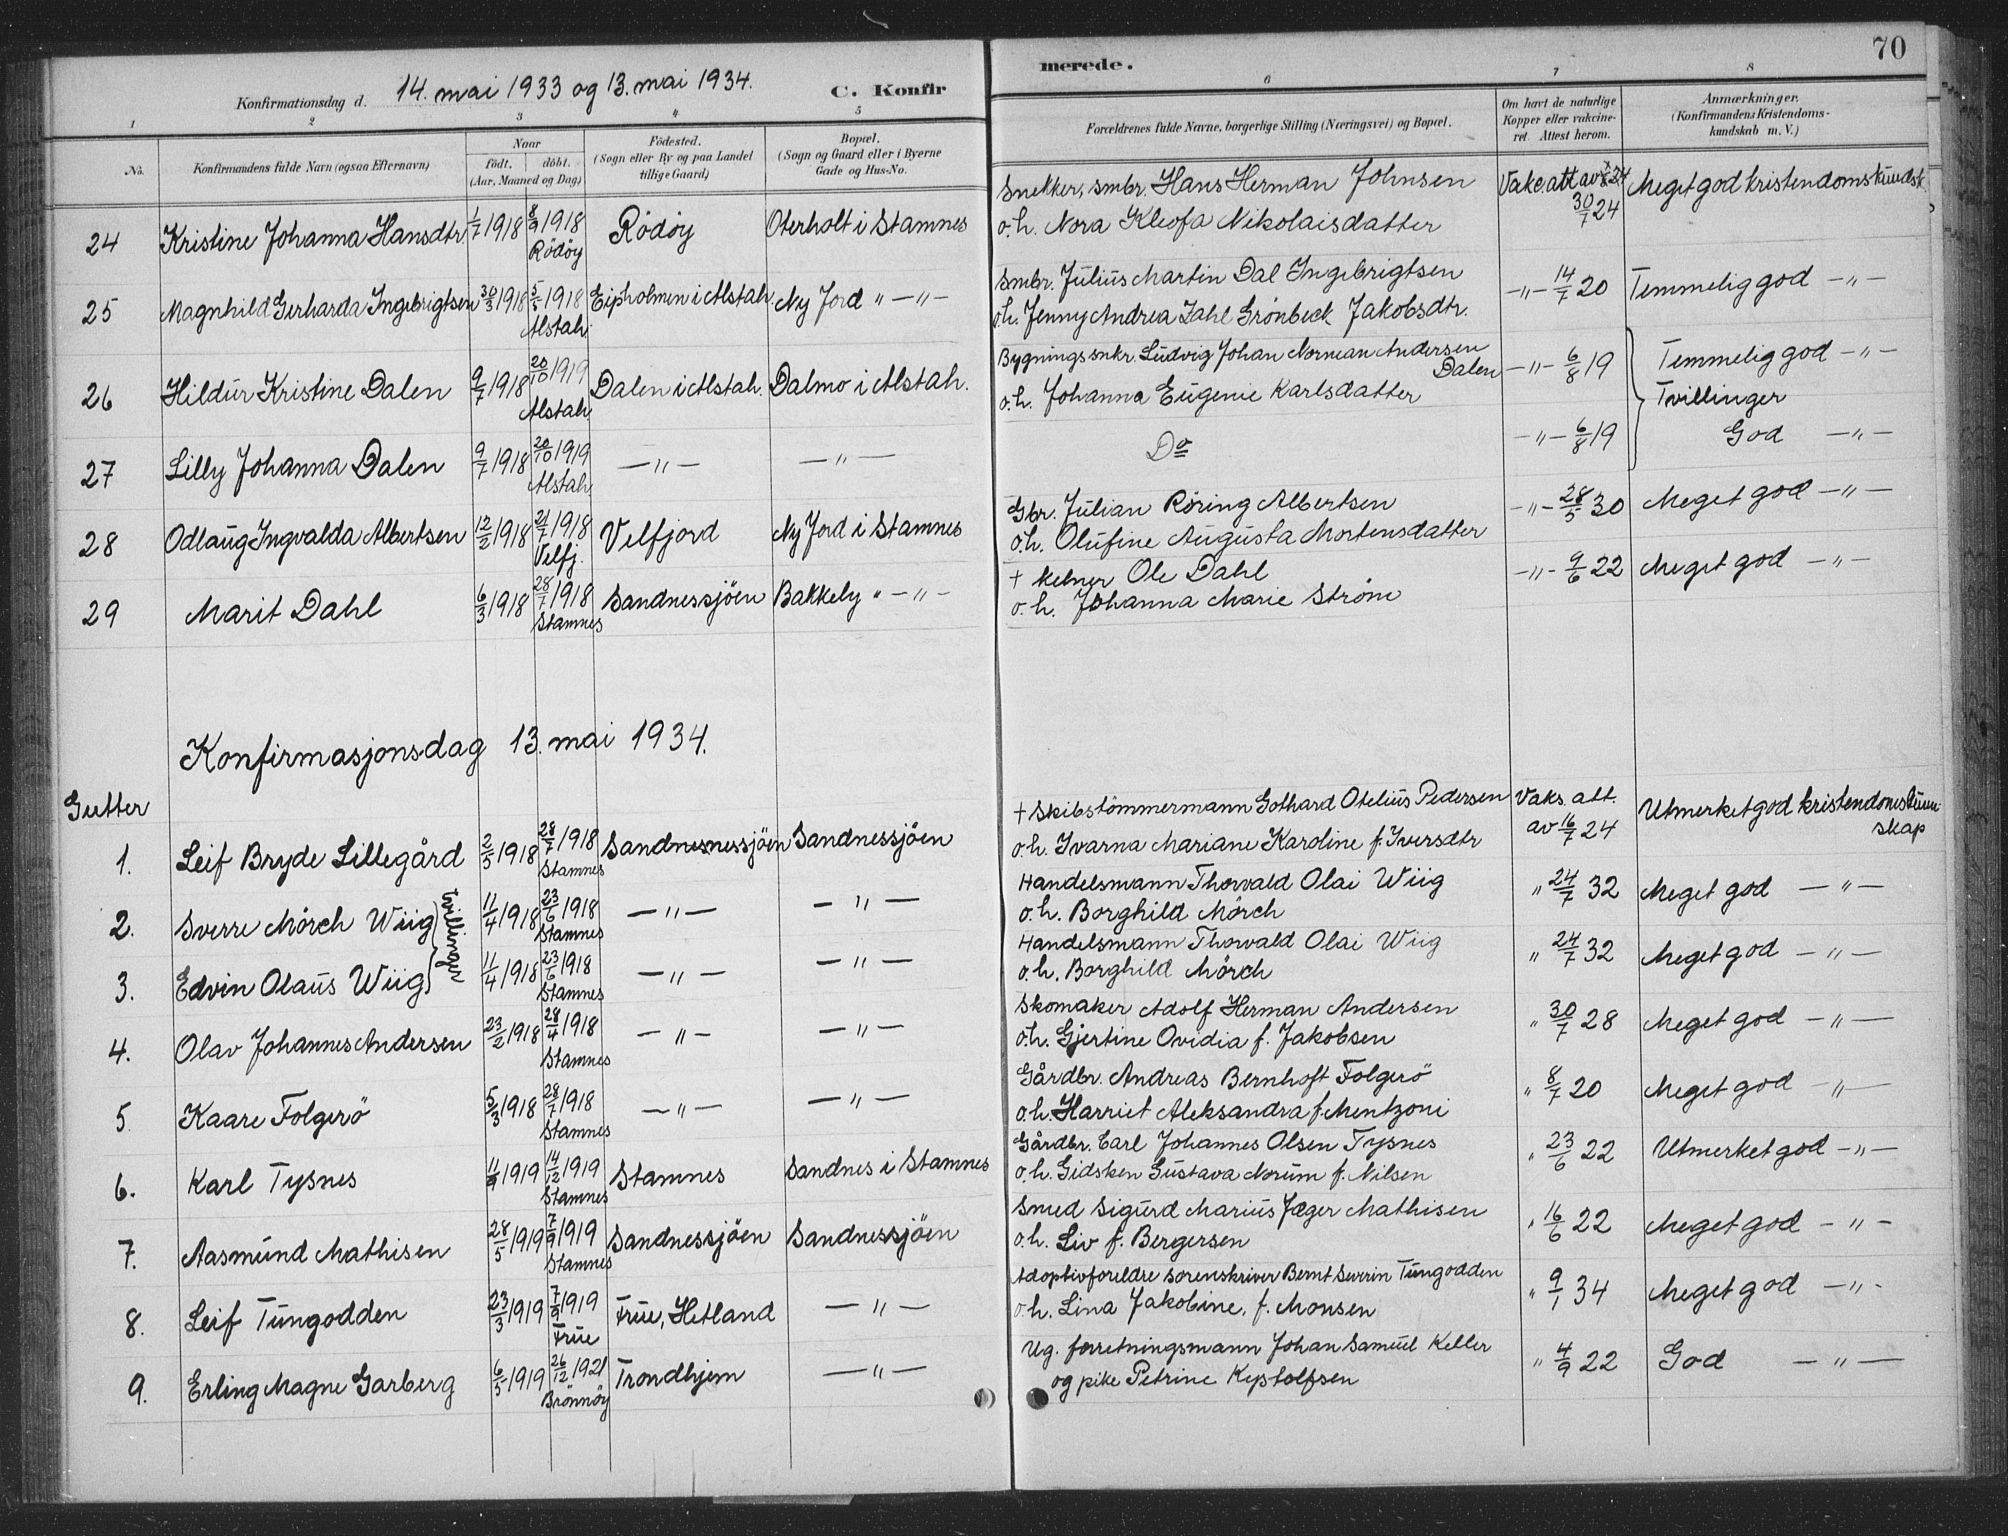 70
Konfirmationsdag d. 14. mai 1933 og 13. mai 1934. C. Konfir
merede.
1 2 3 4 5 6 7 8
No. Konfirmandens fulde Navn (ogsaa Efternavn)
Naar
födt. döbt.
(Aar, Maaned og Dag)
Födested.
(Sogn eller By og paa Landet
tillige Gaard)
Bopæl.
(Sogn og Gaard eller i Byerne
Gade og Hus-No.
Forældrenes fulde Navne, borgerlige Stilling (Næringsvei) og Bopæl.
Om havt de naturlige
Kopper eller vakcine-
ret. Attest herom.
Anmærkninger.
(Konfirmandens Kristendoms-
kundskab m. V.)
24 Kristine Johanna Hansdtr 1/7 1918 8/9 1918 Rödöy Rödöy Oterholt i Stamnes
Snekker, smbr. Hans Herman Johnsen
o.h. Nora Kleofa Nikolaisdatter
Vakc. att av 30/7 24 Meget god kristendomskundsk.
25 Magnhild Gerharda Ingebrigtsen 30/3 1918 5/5 1918 Alstah. Eipholmen i Alstah. Ny Jord " —"—
Smbr. Julius Martin Dal Ingebrigtsen
o.h. Jenny Andrea Zahl Grönbeck Jakobsdtr.
—"— 14/7 20 Temmelig god —"—
26 Hildur Kristine Dalen 9/7 1918 20/10 1919 Alstah. Dalen i Alstah. Dalmo i Alstah.
Bygningssnkr. Ludvig Johan Norman Andersen
Dalen
o.h. Johanna Eugenie Karlsdatter
—"— 6/8 19 Temmelig god —"—
Tvillinger
27 Lilly Johanna Dalen 9/7 1918 20/10 1919 Alstah. —"— —"—
Do
—"— 6/8 19 God —"—
28 Odlaug Ingvalda Albertsen 12/2 1918 21/7 1918 Velfj. Velfjord Ny Jord i Stamnes
Gbr. Julian Röring Albertsen
o.h. Olufine Augusta Mortensdatter
—"— 28/5 30 Meget god —"—
29 Marit Dahl 6/3 1918 28/7 1918 Stamnes Sandnessjöen Bakkely " —"—
+ kelner Ole Dahl
o.h. Johanna Marie Ström
—"— 9/6 22 Meget god —"—
Konfirmasjonsdag 13. mai 1934.
Gutter
1. Leif Bryde Lillegård 2/5 1918 28/7 1918 Stamnes Sandnesnessjöen Sandnessjöen
+ Skibstömmermann Gothard Otelius Pedersen
o.h. Ivarna Mariane Karoline f. Iversdtr
Vaks. att.
av 16/7 24 Utmerket god kristendomskunn-
skap
2. Sverre Mörch Wiig 11/4 1918 23/6 1918 Stamnes —"— —"—
Tvillinger
Handelsmann Thorvald Olai Wiig
o.h. Borghild Mörch
" 24/7 32 Meget god —"—
3. Edvin Olaus Wiig 11/4 1918 23/6 1918 Stamnes —"— —"—
Handelsmann Thorvald Olai Wiig
o.h. Borghild Mörch
" 24/7 32 Meget god —"—
4. Olav Johannes Andersen 23/2 1918 28/4 1918 Stamnes —"— —"—
Skomaker Adolf Herman Andersen
o.h. Gjertine Ovidia f. Jakobsen
" 30/7 28 Meget god —"—
5 Kaare Folgerö 5/3 1918 28/7 1918 Stamnes —"— —"—
Gårdbr. Andreas Bernhoft Folgerö
o.h. Harriet Aleksandra f. Mentzoni
" 8/7 20 Meget god —"—
6. Karl Tysnes 11/9 1919 14/12 1919 Stamnes Stamnes Sandnes i Stamnes
Gårdbr. Carl Johannes Olsen Tysnes
o.h. Gidsken Gustava Norum f. Nilsen
" 23/6 22 Utmerket god —"—
7. Aasmund Mathisen 28/5 1919 7/9 1919 Stamnes Sandnessjöen Sandnessjöen
Smed Sigurd Marius Jæger Mathisen
o.h. Liv f. Bergersen
" 16/6 22 Meget god —"—
8. Leif Tungodden 23/3 1919 7/9 1919 Frue Frue, Hetland —"—
Adoptivforeldre sorenskriver Bernt Severin Tungodden
o.h. Lina Jakobine, f. Monsen
" 9/1 34 Meget god —"—
9. Erling Magne Garberg 6/5 1919 26/12 1921 Brönnöy Trondhjem —"—
Ug. forretningsmann Johan Samuel Keller
og pike Petrine Kystolfsen
" 4/9 22 God —"—